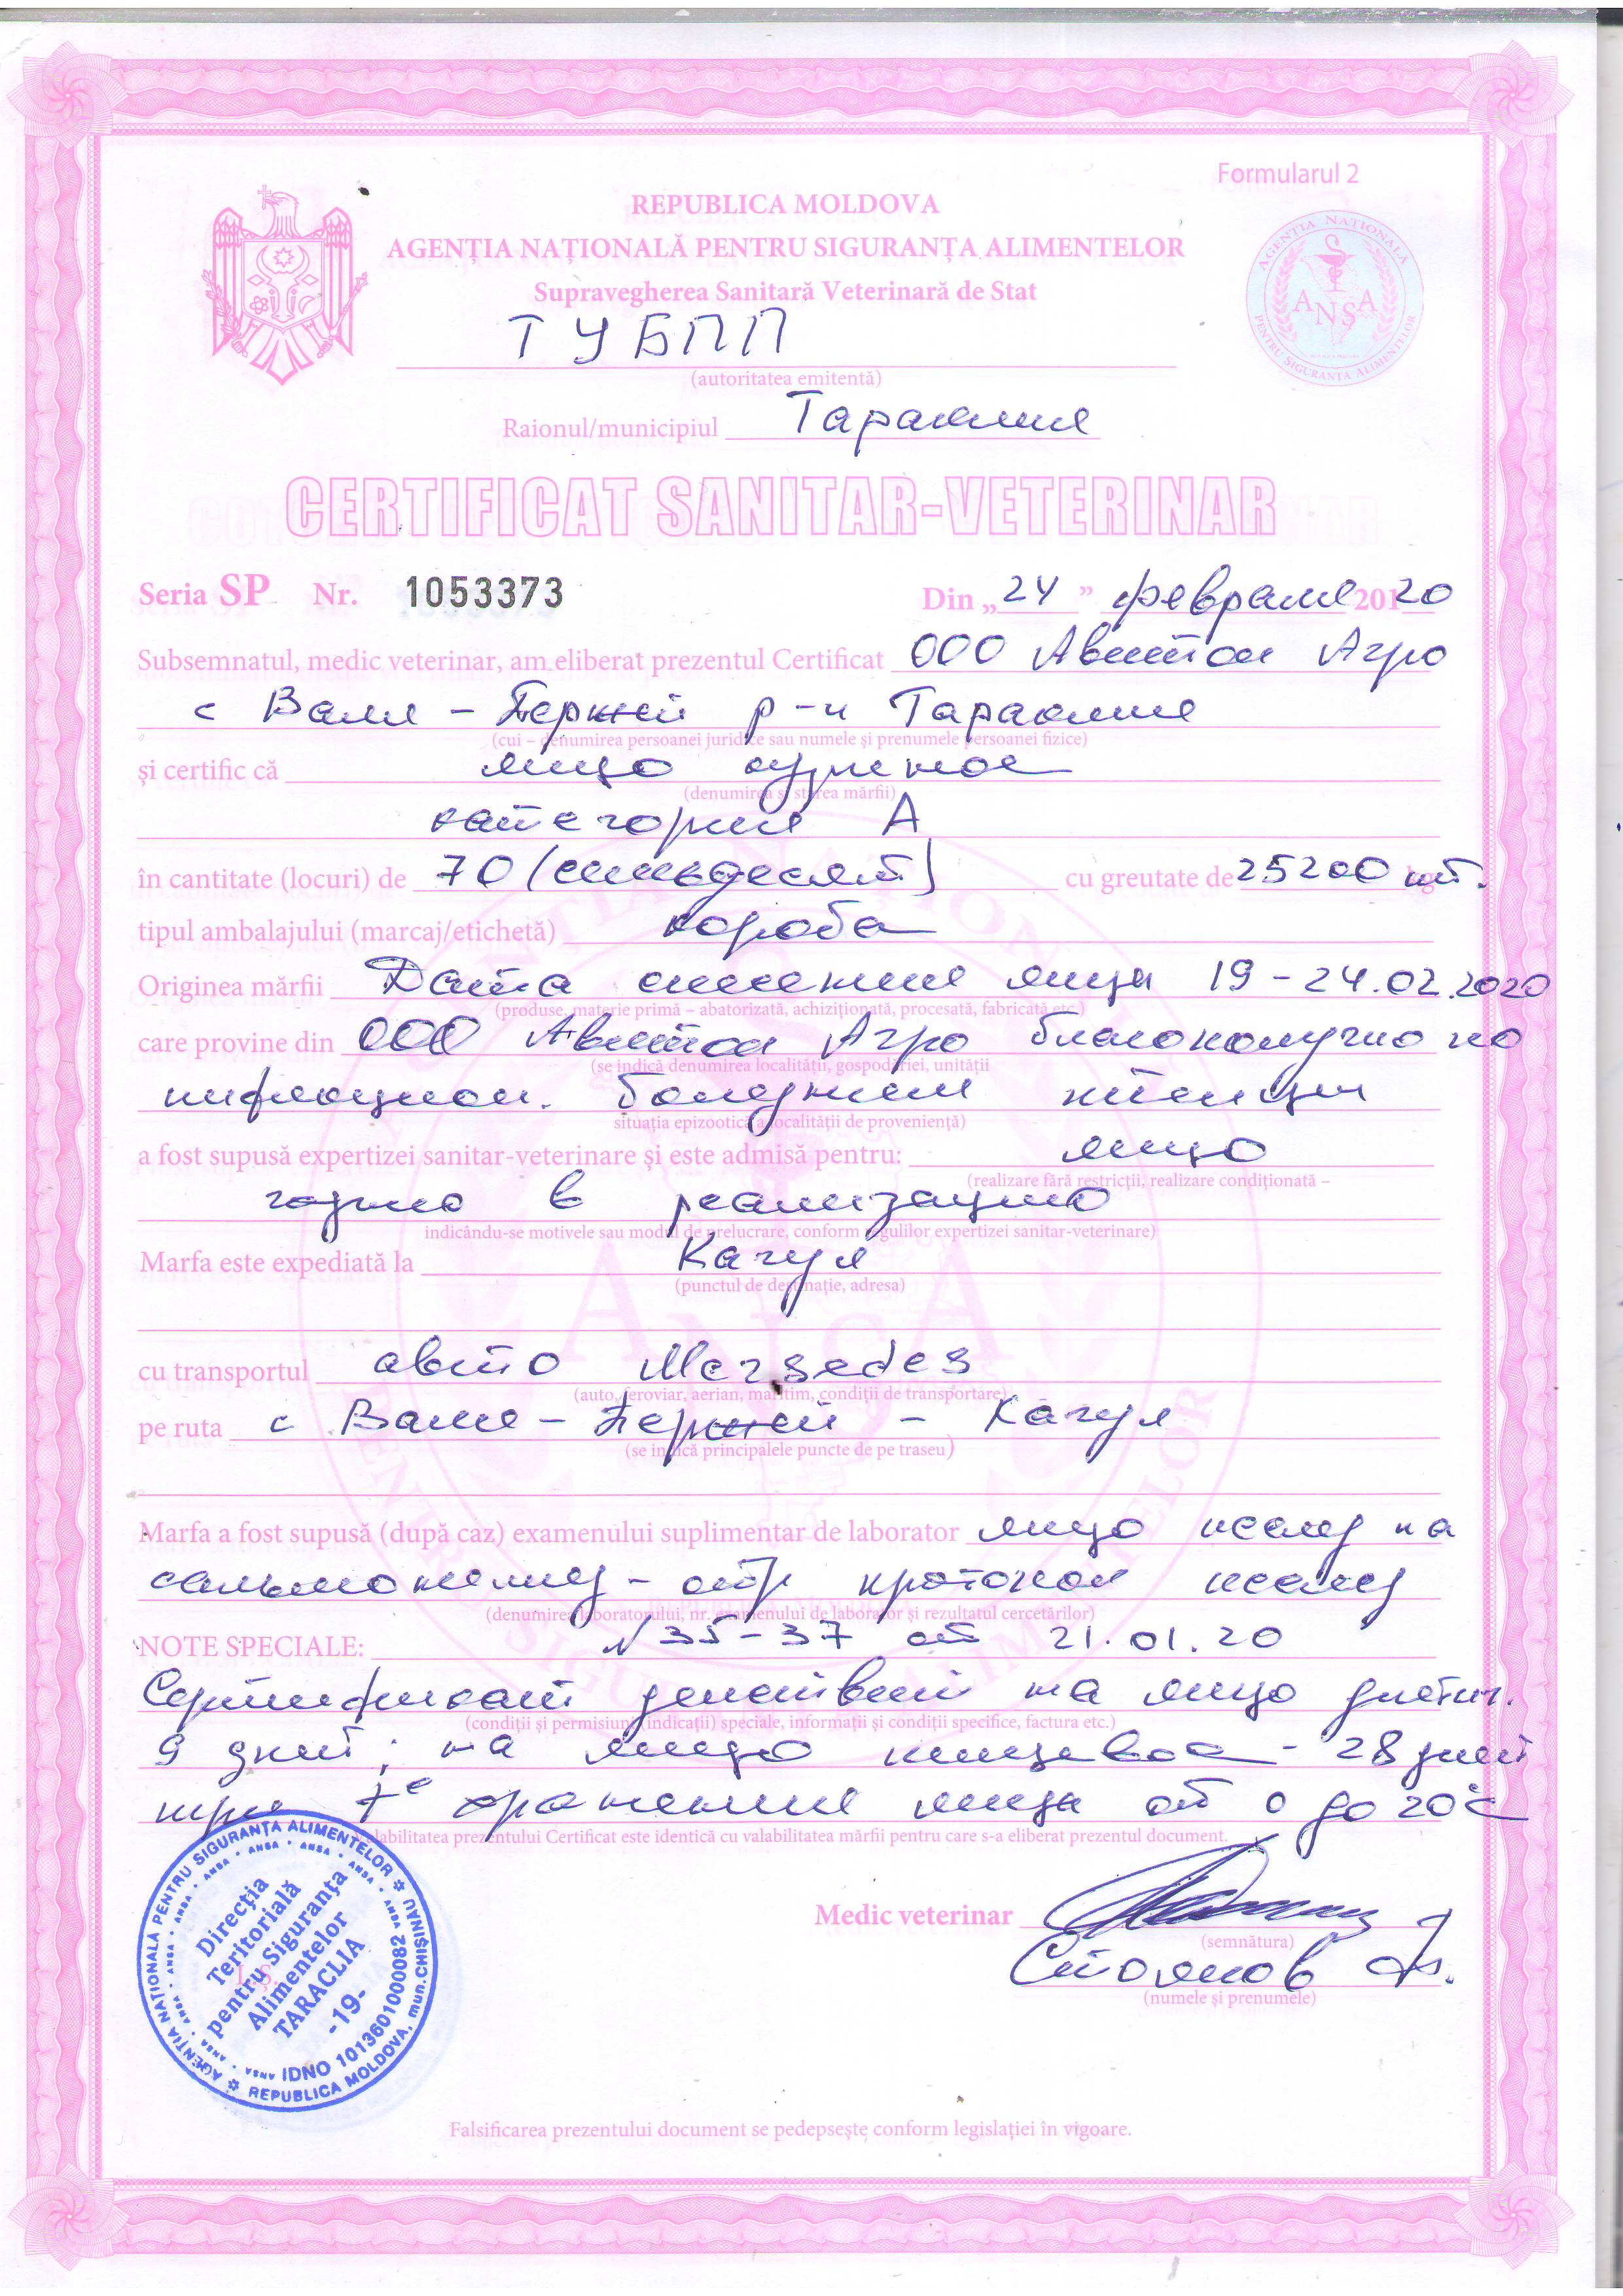 Formularul 2
REPUBLICA MOLDOVA
AGENȚIA NAȚIONALĂ PENTRU SIGURANȚA ALIMENTELOR
Supravegherea Sanitară Veterinară de Stat
ТУБПП
(autoritatea emitentă)
AGENȚIA NAȚIONALĂ PENTRU SIGURANȚA ALIMENTELOR
ANSA
Raionul/municipiul Тараклия
CERTIFICAT SANITAR-VETERINAR
Seria SP Nr. 1053373 Din „24” февраля 20120
Subsemnatul, medic veterinar, am eliberat prezentul Certificat ООО Авитон Агро
с Валя-Пержей р-н Тараклия
(cui – denumirea persoanei juridice sau numele și prenumele persoanei fizice)
și certific că яйцо куриное
(denumirea și starea mărfii)
категория А
în cantitate (locuri) de 70 (семьдесят) cu greutate de 25200 шт.
tipul ambalajului (marcaj/etichetă) короба
Originea mărfii Дата снесения яйца 19-24.02.2020
(produse, materie primă – abatorizată, achiziționată, procesată, fabricată etc.)
care provine din ООО Авитон Агро благополучно по
(se indică denumirea localității, gospodăriei, unității
инфекцион. болезням птицы
situația epizootică a localității de proveniență)
a fost supusă expertizei sanitar-veterinare și este admisă pentru: яйцо
(realizare fără restricții, realizare condiționată –
годно в реализацию
indicându-se motivele sau modul de prelucrare, conform regulilor expertizei sanitar-veterinare)
Marfa este expediată la Кагул
(punctul de destinație, adresa)
cu transportul авто Merzedes
(auto, feroviar, aerian, maritim, condiții de transportare)
pe ruta с Валя-Пержей - Кагул
(se indică principalele puncte de pe traseu)
Marfa a fost supusă (după caz) examenului suplimentar de laborator яйцо исслед на
сальмонеллез - отр протокол исслед
(denumirea laboratorului, nr. examenului de laborator și rezultatul cercetărilor)
NOTE SPECIALE: N 35-37 от 21.01.20
Сертификат действит на яйцо диетич.
(condiții și permisiuni (indicații) speciale, informații și condiții specifice, factura etc.)
9 дней; на яйцо пищевое - 28 дней
при t° хранения яйца от 0 до 20°С
Valabilitatea prezentului Certificat este identică cu valabilitatea mărfii pentru care s-a eliberat prezentul document.
Medic veterinar
(semnătura)
Стоянов
(numele și prenumele)
L.Ș.
AGENȚIA NAȚIONALĂ PENTRU SIGURANȚA ALIMENTELOR
REPUBLICA MOLDOVA, mun. CHIȘINĂU
IDNO 1013601000082
Direcția
Teritorială
pentru Siguranța
Alimentelor
TARACLIA
-19-
Falsificarea prezentului document se pedepsește conform legislației în vigoare.